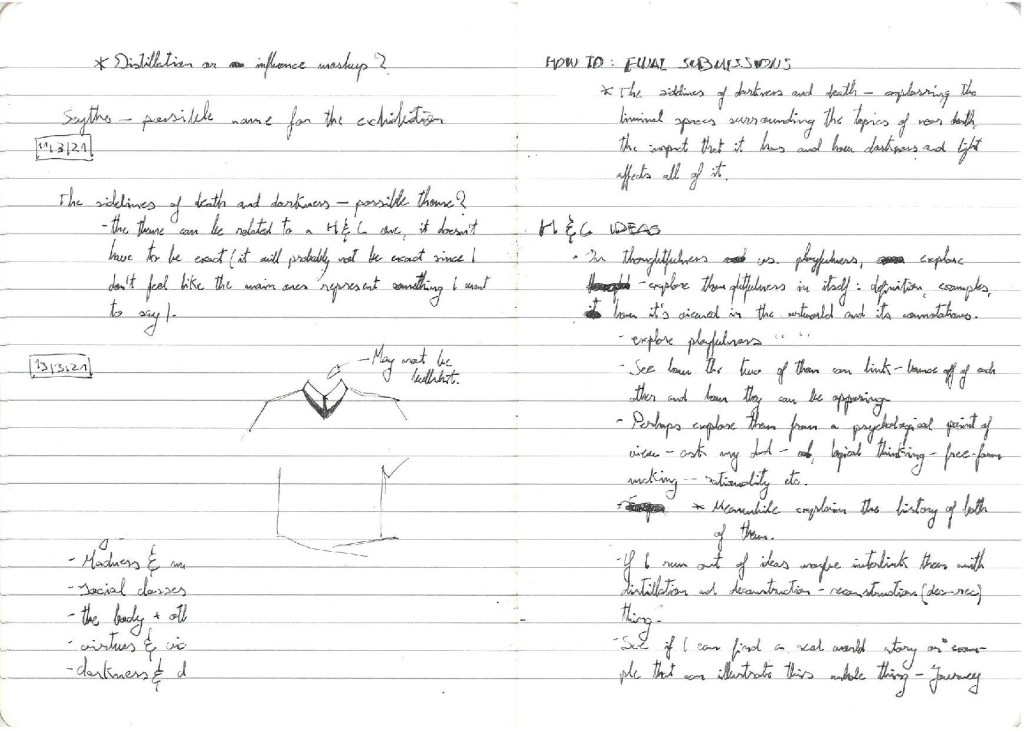 * Distillation or influence mashup?
Scythe – possible name for the exhibition
11/3/21
The sidelines of death and darkness – possible theme?
- the theme can be related to a H&G one, it doesn't
have to be exact (it will probably not be exact since I
don't feel like the main ones represent something I want
to say).
13/3/21
- May not be
- Madness &
- social classes
- the body +
- virtues &
- darkness & d
HOW TO: FINAL SUBMISSIONS
* The sidelines of darkness and death – explorring the
liminal spaces surrounding the topics of death,
the impact that it has and how darkness and light
affects all of it.
H & G IDEAS
• In thoughtfulness vs. playfulness, explore
- explore thoughtfulness in itself: definition, examples,
how it's viewed in the artworld and its connotations.
- explore playfulness " "
- See how the two of them can link – bounce off of each
other and how they can be opposing.
- Perhaps explore them from a psychological point of
view – ask my dad – logical thinking – free-form
making -- rationality etc.
* Meanwhile explain the history of both
of them.
- If I run out of ideas maybe interlink them with
distillation and deconstruction - reconstruction (dec-rec)
thing.
- See if I can find a real world story or exam-
ple that can illustrate this whole thing – Journey